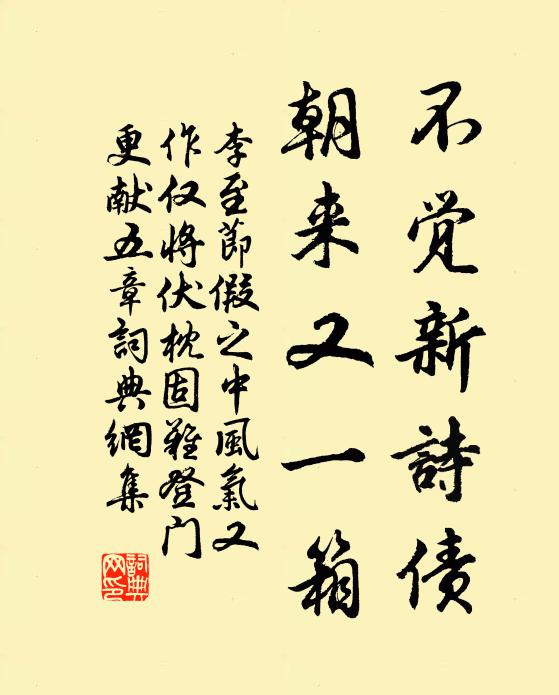 不觉新詩债
朝来又一箱
李至節假之中風氣又
作仅将伏枕固難登门
更献五章詞典網集
詞典网印